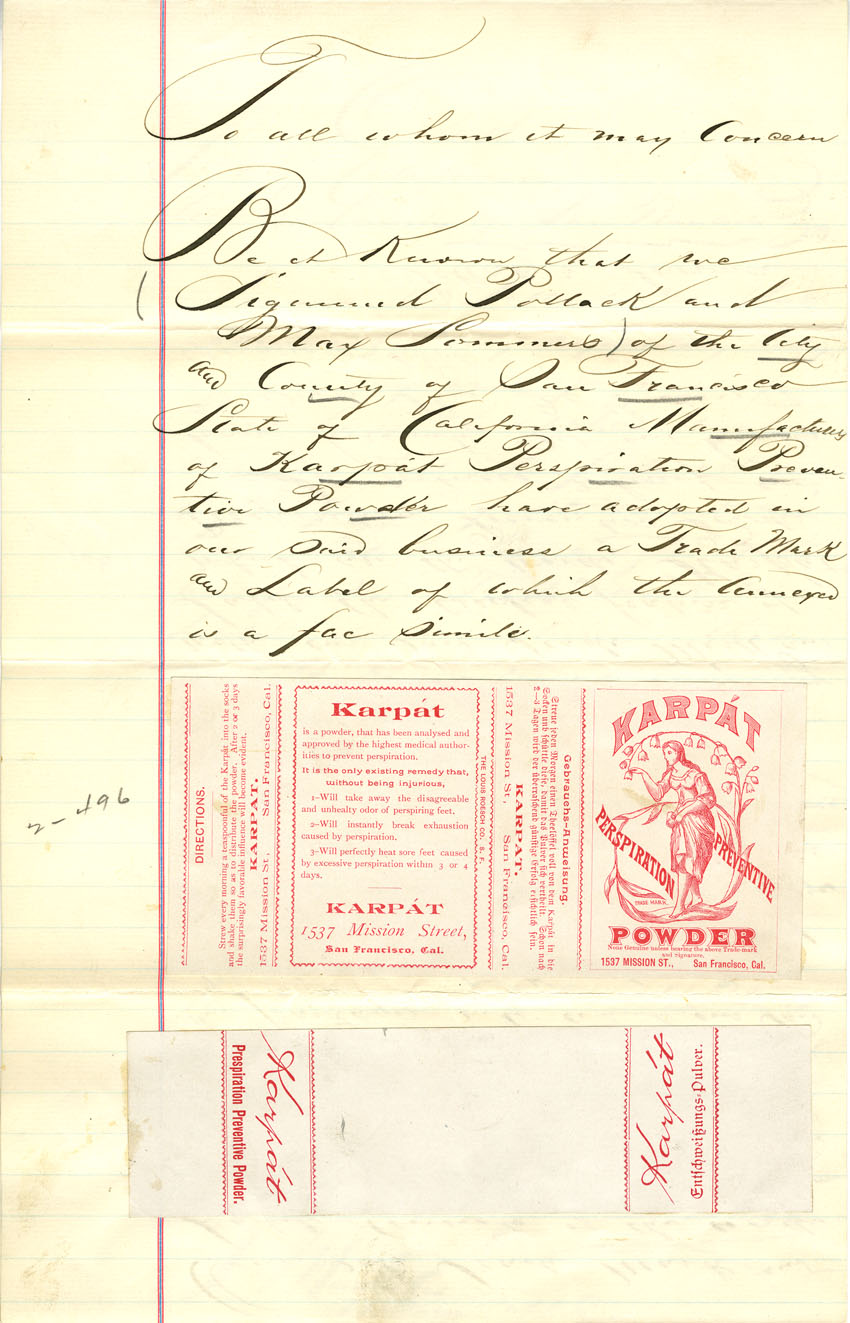 To all whom it may Concern
Be it Known that we
(Sigmund Pollack and
Max Sommers) of the City
and County of San Francisco
State of California Manufacturers
of Karpát Perspiration Preven-
tive Powder have adopted in
our said business a Trade Mark
and Label of which the annexed
is a fac simile.
2-496
DIRECTIONS.
Strew every morning a teaspoonful of the Karpát into the socks
and shake them so as to distribute the powder. After 2 or 3 days
the surprisingly favorable influence will become evident.
KARPAT.
1537 Mission St., San Francisco, Cal.
Karpát
is a powder, that has been analysed and
approved by the highest medical author-
ities to prevent perspiration.
It is the only existing remedy that,
without being injurious,
1—Will take away the disagreeable
and unhealty odor of perspiring feet.
2—Will instantly break exhaustion
caused by perspiration.
3—Will perfectly heat sore feet caused
by excessive perspiration within 3 or 4
days.
KARPÁT
1537 Mission Street,
San Francisco, Cal.
THE LOUIS ROESCH CO., S. F.
Gebrauchs-Anweisung.
Streue jeden Morgen einen Theelöffel voll von dem Karpát in die
Socken und schüttle diese, damit das Pulver sich vertheilt. Schon nach
2—3 Tagen wird der überraschend günstige Erfolg ersichtlich sein.
KARPAT.
1537 Mission St., San Francisco, Cal.
KARPÁT
PERSPIRATION
PREVENTIVE
TRADE MARK
POWDER
None Genuine unless bearing the above Trade-mark
and signature.
1537 MISSION ST., San Francisco, Cal.
Karpát
Prespiration Preventive Powder.
Karpát
Entschweißungs-Pulver.